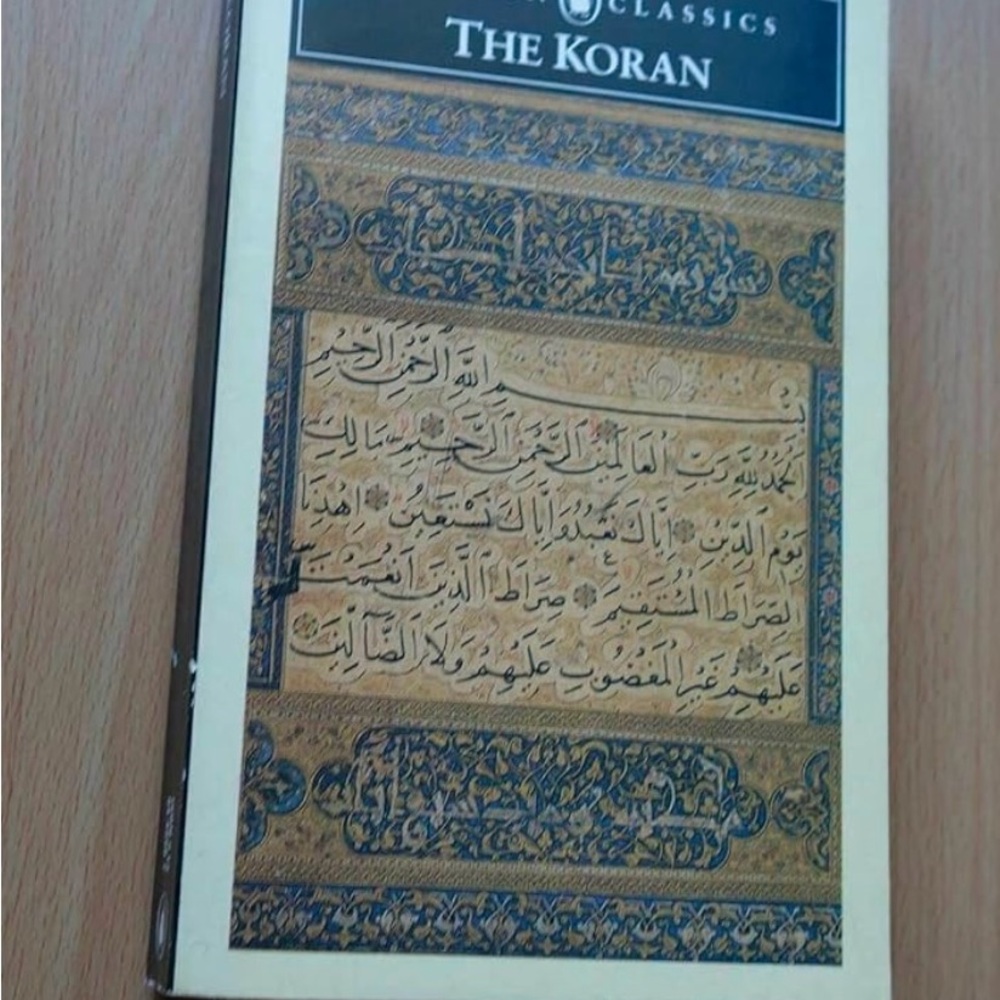 CLASSICS
THE KORAN
بِسْمِ اللَّهِ الرَّحْمَنِ الرَّحِيمِ
الْحَمْدُ لِلَّهِ رَبِّ الْعَالَمِينَ الرَّحْمَنِ الرَّحِيمِ مَالِكِ
يَوْمِ الدِّينِ إِيَّاكَ نَعْبُدُ وَإِيَّاكَ نَسْتَعِينُ اهْدِنَا
الصِّرَاطَ الْمُسْتَقِيمَ صِرَاطَ الَّذِينَ أَنْعَمْتَ
عَلَيْهِمْ غَيْرِ الْمَغْضُوبِ عَلَيْهِمْ وَلَا الضَّالِّينَ